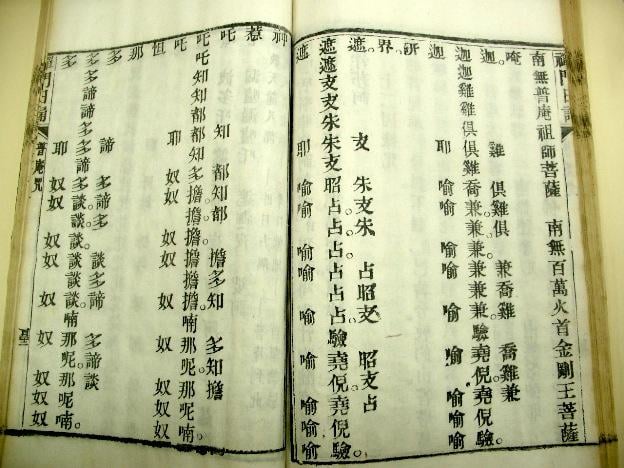 南無普庵祖師菩薩　南無百萬火首金剛王菩薩
唵。雞俱雞俱兼喬雞喬雞兼
迦。迦迦雞雞俱俱雞喬兼。兼。兼兼兼驗堯倪。堯倪驗。
迦耶喻喻喻喻喻喻喻喻
研。
界。
遮。支朱支朱占昭支昭支占
遮遮支支朱朱支昭占。占。占占占驗堯倪堯倪驗
遮耶喻喻喻喻喻喻喻喻
神
惹
吒知都知都擔多知多知擔
吒吒知知都都知多擔。擔。擔擔擔喃那呢。那呢喃。
吒耶奴奴奴奴奴奴奴奴
怛
那
多諦多諦多談多諦多諦談
多多諦諦多多諦多談。談。談談談喃那呢。那呢喃。
多耶奴奴奴奴奴奴奴奴
門日誦　普庵咒